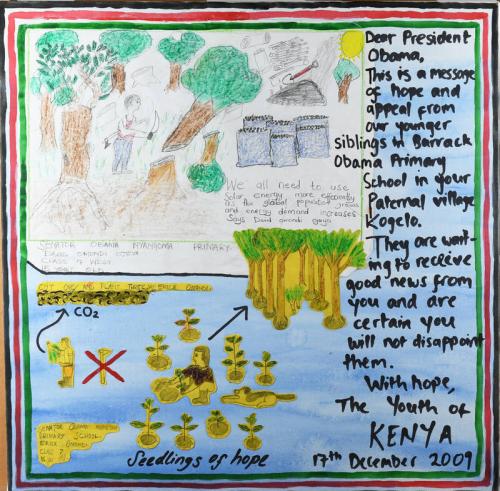 Dear President
Obama,
This is a message
of hope and
appeal from
our younger
siblings in Barrack
Obama Primary
School in your
Paternal village
Kogelo.
They are wait-
ing to receive
good news from
you and are
certain you
will not disappoint
them.
With hope,
The Youth of
KENYA
17th December 2009
We all need to use
Solar energy more efficiently
as the global population grows
and energy demand increases
Says David omondi
SENATOR OBAMA NYANGOMA PRIMARY
DAVID OMONDI
CLASS 7 WEST
15 YEARS OLD
CUT ONE AND PLANT THREE
CO2
SENATOR OBAMA
PRIMARY SCHOOL
CLASS 7
Seedlings of hope